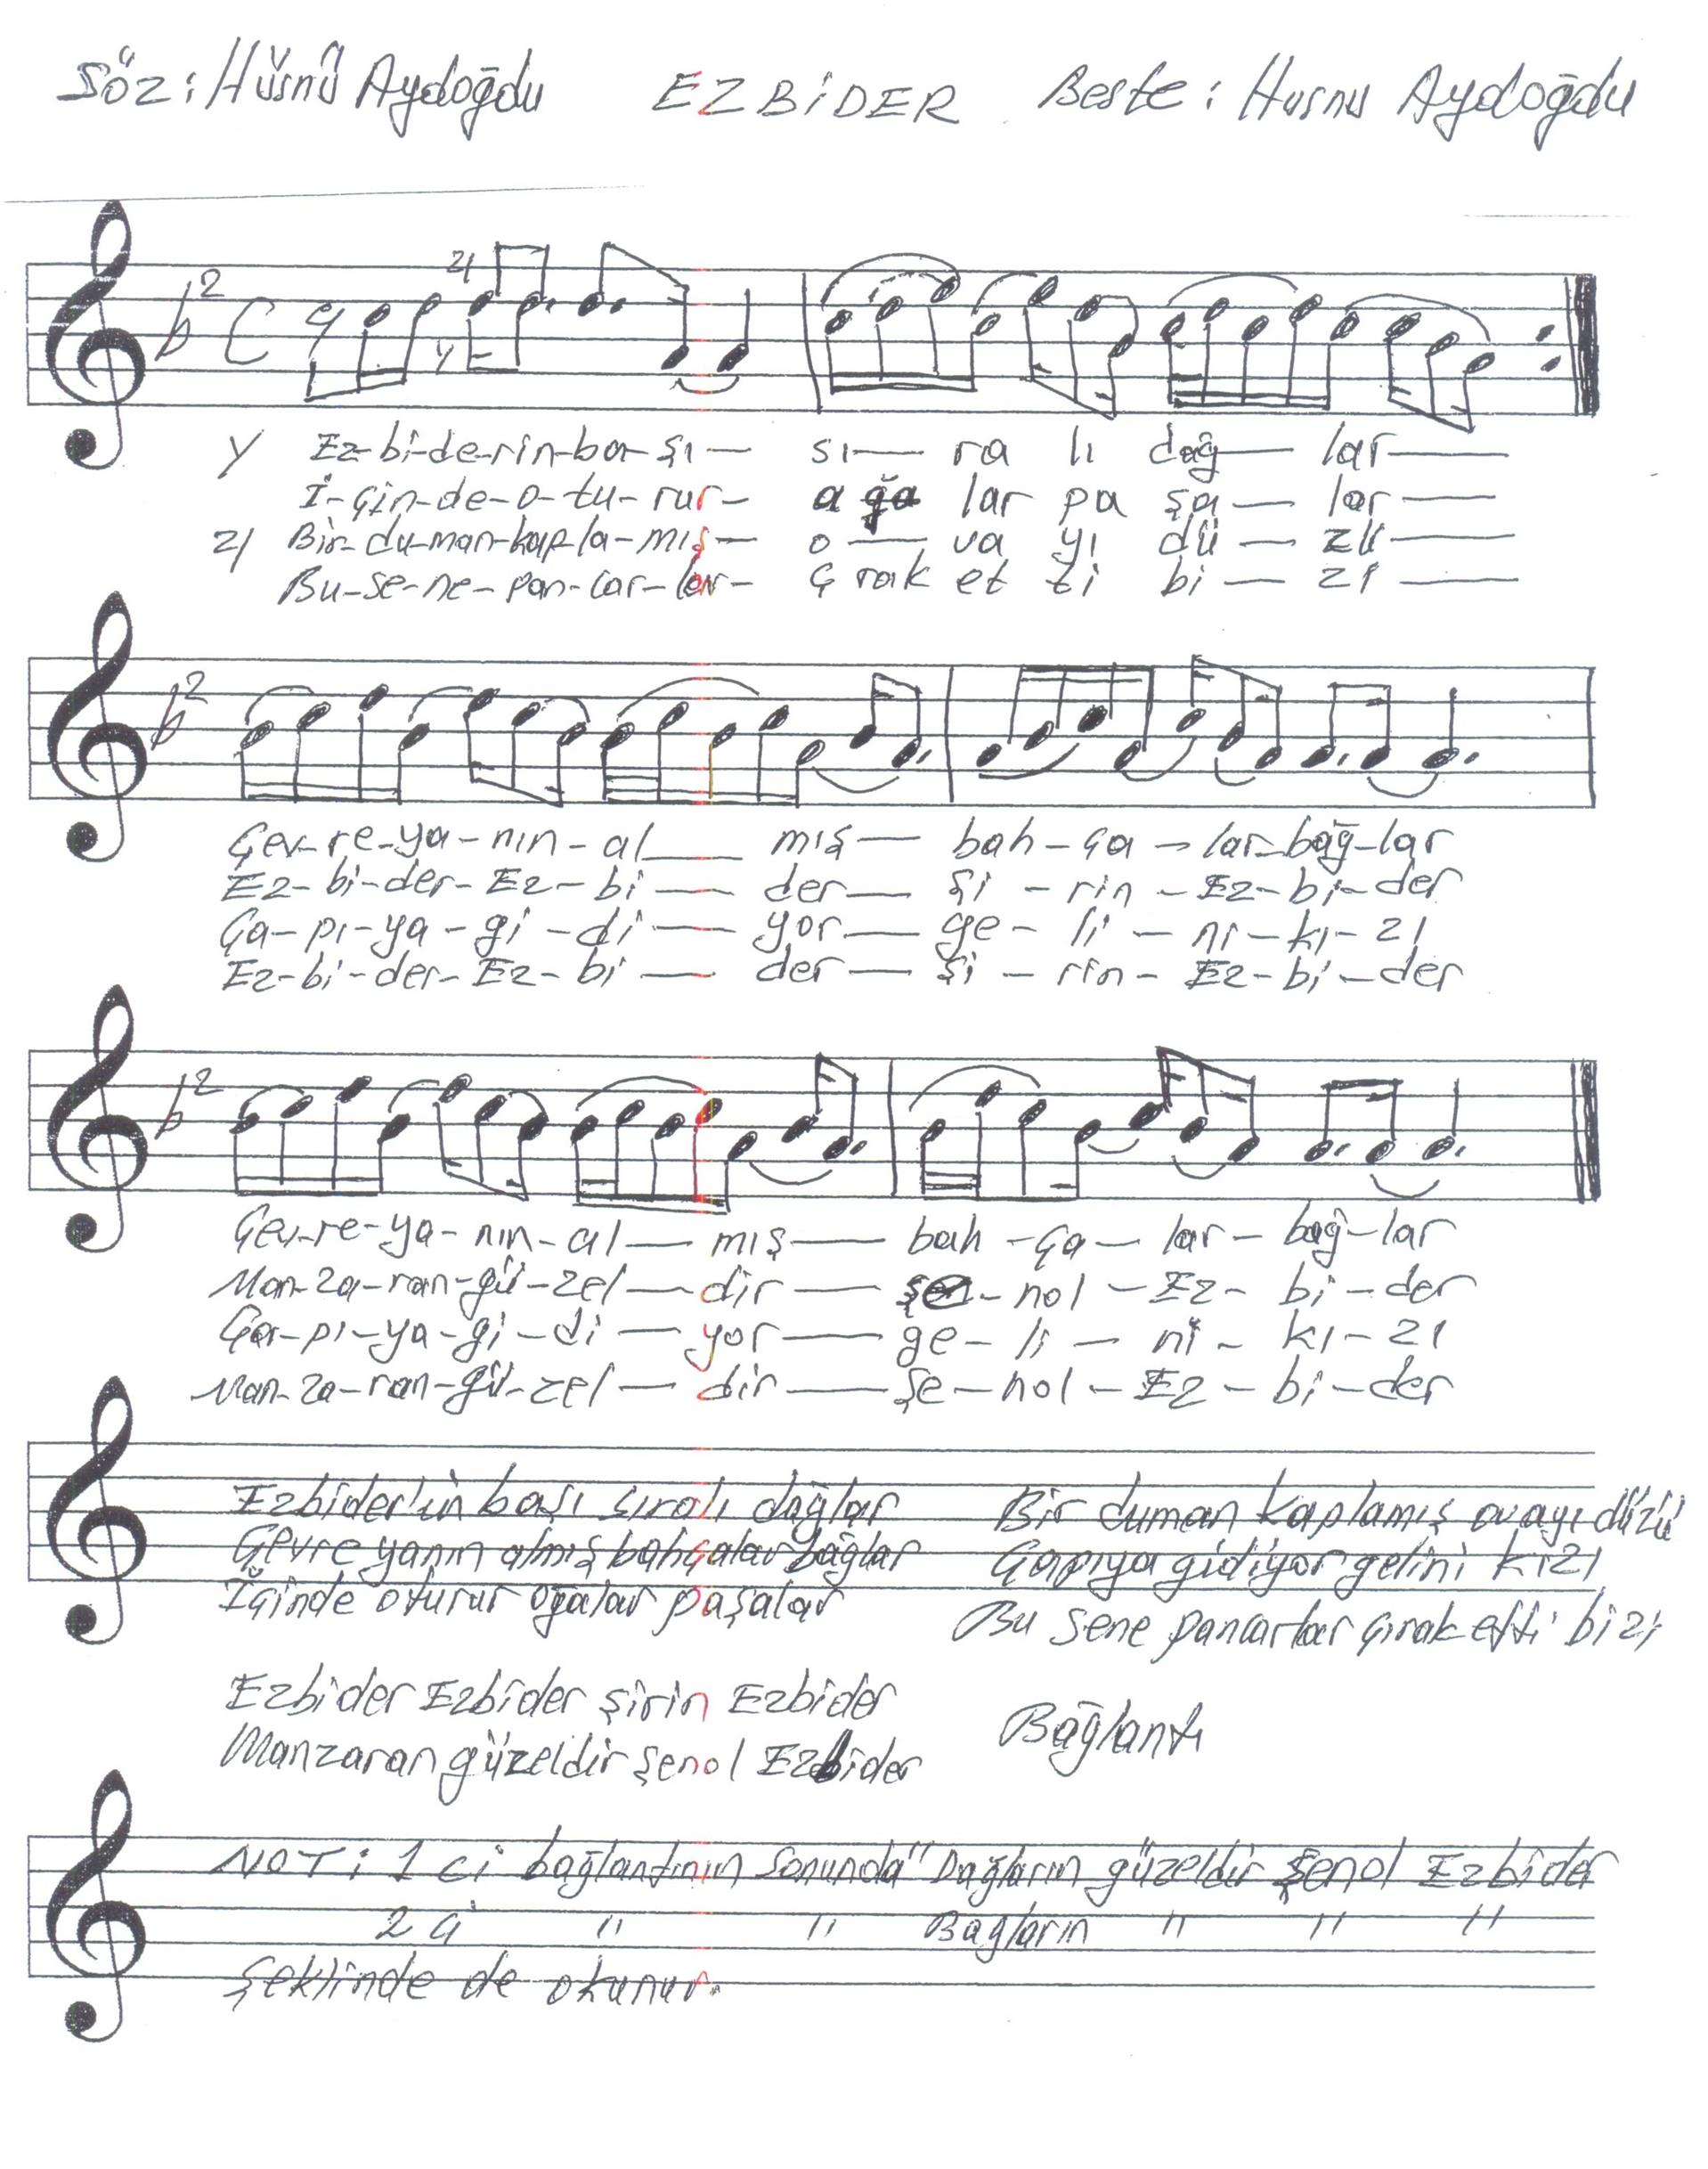 Söz: Hüsnü Aydoğdu EZBİDER Beste: Husnu Aydoğdu
1/ Ez-bi-de-rin-ba-şı— sı— ra lı dağ— lar—
İ-çin-de-o-tu-rur- a ğa lar pa şa— lar—
2/ Bir-du-man-kap-la-mış— o— va yı dü— zü—
Bu-se-ne-pan-car-lar- ç rak et ti bi— zi—
Çev-re-ya-nın-al— mış— bah-ça-lar-bağ-lar
Ez-bi-der-Ez-bi— der— şi-rin-Ez-bi-der
Ça-pı-ya-gi-di— yor— ge-li-ni-kı-zı
Ez-bi-der-Ez-bi— der— şi-rin-Ez-bi-der
Çev-re-ya-nın-al— mış— bah-ça-lar-bağ-lar
Man-za-ran-gü-zel— dir— şe-nol-Ez-bi-der
Ça-pı-ya-gi-di— yor— ge-li-ni-kı-zı
Man-za-ran-gü-zel— dir— şe-nol-Ez-bi-der
Ezbider'in başı sıralı dağlar
Çevre yanın almış bahçalar bağlar
İçinde oturur ağalar paşalar
Bir duman kaplamış ovayı düzü
Çapıya gidiyor gelini kızı
Bu sene pancarlar çırak etti bizi
Ezbider Ezbider şirin Ezbider
Manzaran güzeldir şenol Ezbider
Bağlantı
NOT: 1 ci bağlantının sonunda" Dağların güzeldir Şenol Ezbider
2 ci " " Bağların " " "
Şeklinde de okunur.